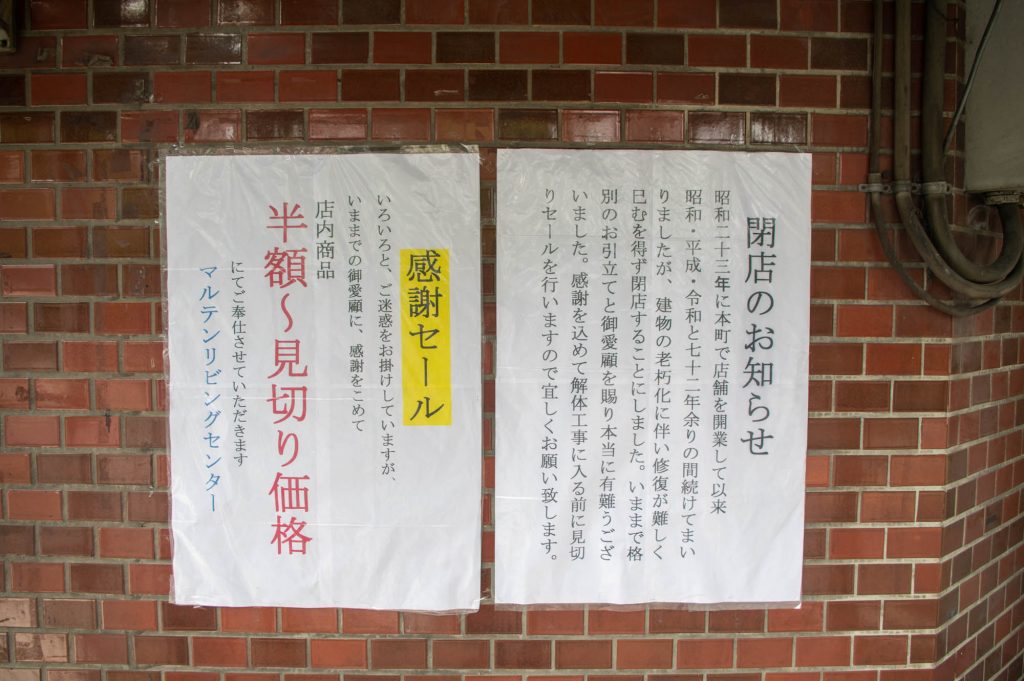 閉店のお知らせ
昭和二十三年に本町で店舗を開業して以来
昭和・平成・令和と七十二年余りの間続けてまい
りましたが、建物の老朽化に伴い修復が難しく
巳むを得ず閉店することにしました。いままで格
別のお引立てと御愛顧を賜り本当に有難うござ
いました。感謝を込めて解体工事に入る前に見切
りセールを行いますので宜しくお願い致します。
感謝セール
いろいろと、ご迷惑をお掛けしていますが、
いままでの御愛顧に、感謝をこめて
店内商品
半額～見切り価格
にてご奉仕させていただきます
マルテンリビングセンター